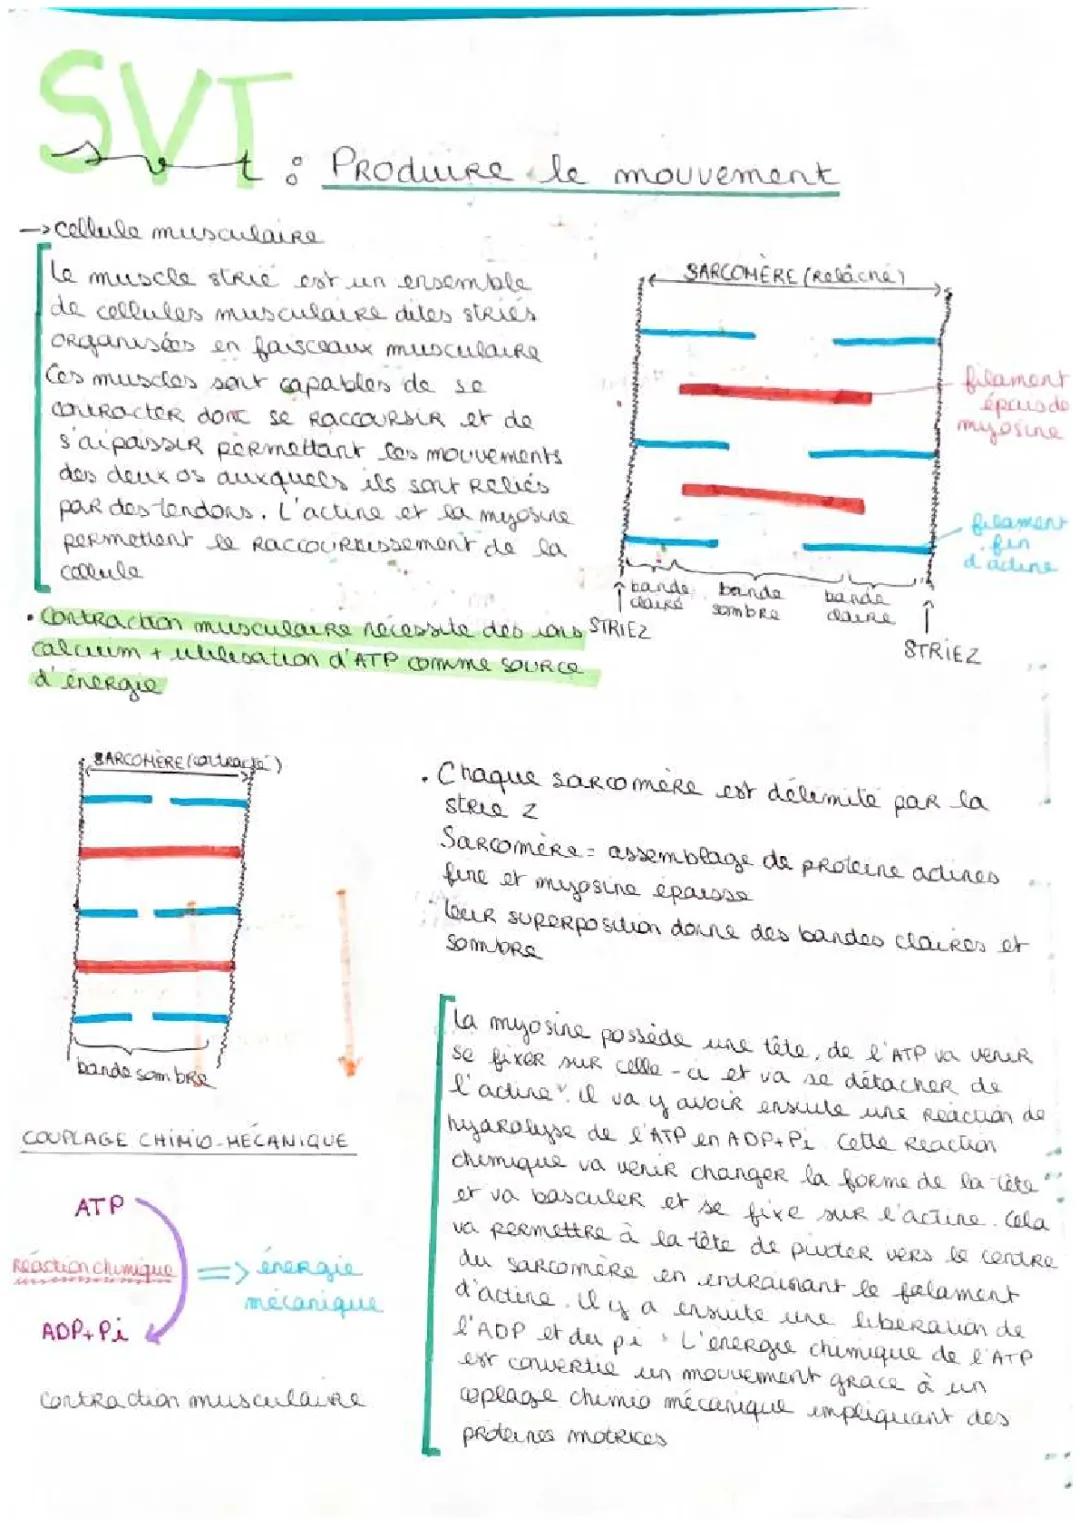 SVT
svt : Produire le mouvement
→ cellule musculaire
Le muscle strié est un ensemble
de cellules musculaire dites striés
organisées en faisceaux musculaire
Ces muscles sont capables de se
contracter donc se raccoursir et de
s'aipassir permettant les mouvements
des deux os auxquels ils sont reliés
par des tendons. L'actine et la myosine
permettent le raccourcissement de la
cellule
• Contraction musculaire nécessite des ions
calcium + utilisation d'ATP comme source
d'énergie
SARCOMÈRE (Relâché)
filament
épais de
myosine
filament
fin
d'actine
bande claire
bande sombre
bande claire
STRIEZ
STRIEZ
SARCOMÈRE (contracté)
bande sombre
• Chaque sarcomère est délimité par la
strie z
Sarcomère = assemblage de proteine actines
fine et myosine épaisse
leur superposition donne des bandes claires et
sombre
La myosine possède une tête, de l'ATP va venir
se fixer sur celle-ci et va se détacher de
l'actine. il va y avoir ensuite une réaction de
hydrolyse de l'ATP en ADP+Pi. Cette reaction
chimique va venir changer la forme de la tête
et va basculer et se fixe sur l'actine. Cela
va permettre à la tête de pivoter vers le centre
du sarcomère en entrainant le filament
d'actine. il y a ensuite une libération de
l'ADP et du pi. L'énergie chimique de l'ATP
est convertie un mouvement grace à un
coplage chimio mécanique impliquant des
protéines motrices
COUPLAGE CHIMIO-MÉCANIQUE
ATP
Réaction chimique => énergie
mécanique
ADP+Pi
contraction musculaire